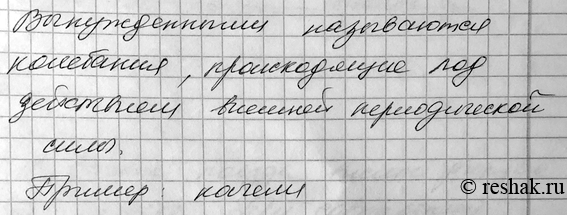 Вынужденными называются
колебания, происходящие под
действием внешней периодической
силы.
Пример: качели
© reshak.ru